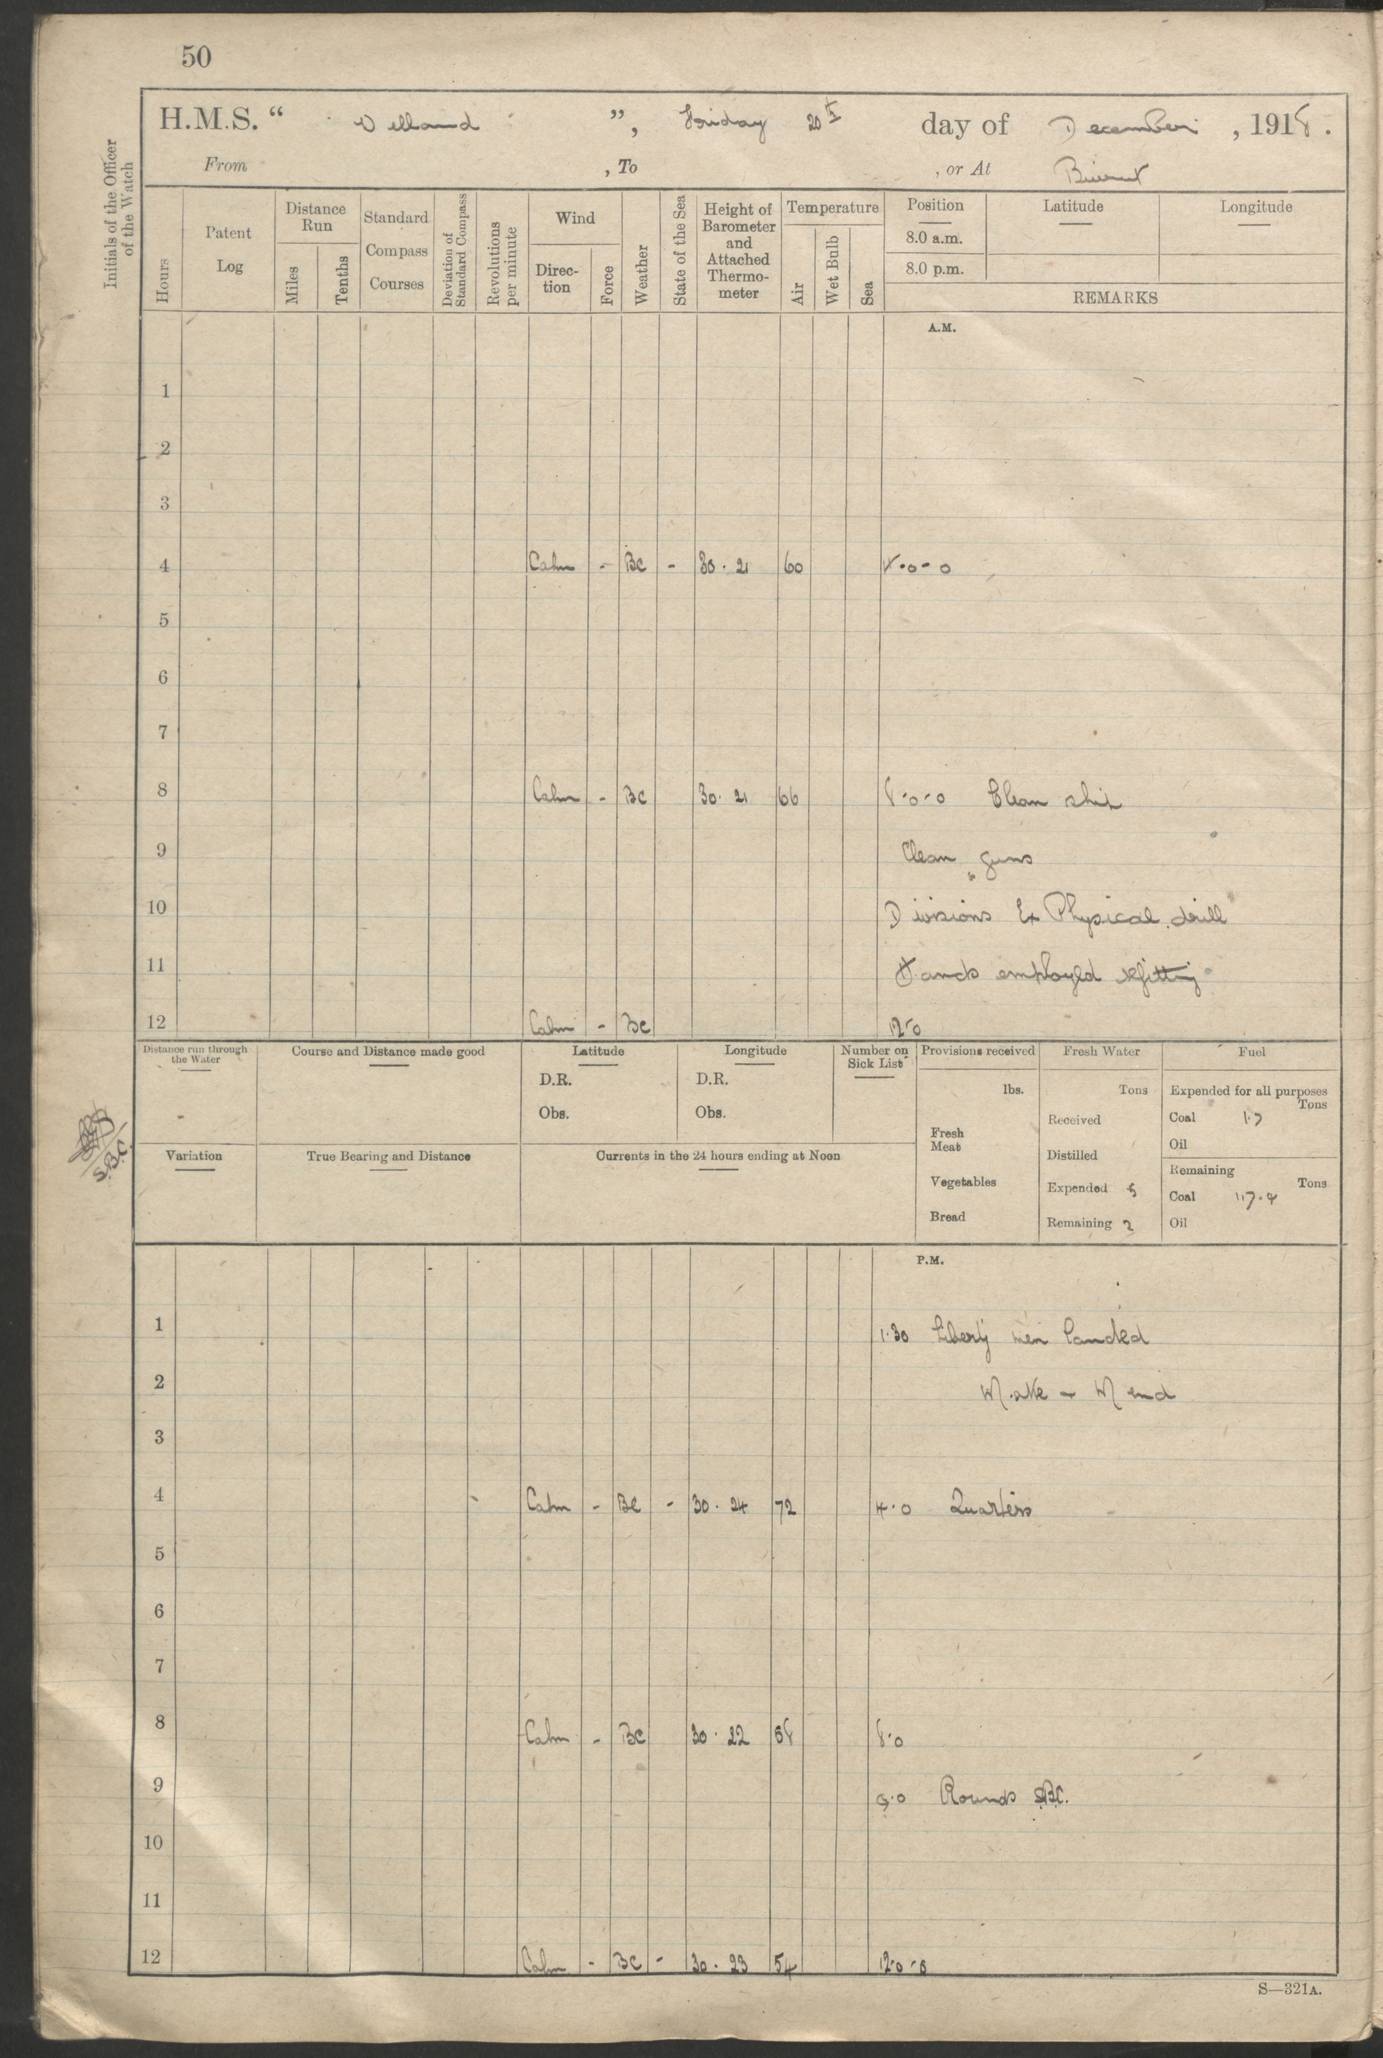 50
H.M.S. “ Welland ”, Friday 20th day of December, 1918.
From , To , or At Beirut
Initials of the Officer of the Watch
Hours
Patent Log
Distance Run
Miles
Tenths
Standard Compass Courses
Deviation of Standard Compass
Revolutions per minute
Wind
Direc-tion
Force
Weather
State of the Sea
Height of Barometer and Attached Thermo-meter
Temperature
Air
Wet Bulb
Sea
Position
8.0 a.m.
8.0 p.m.
Latitude
Longitude
REMARKS
A.M.
1
2
3
4 Calm - BC - 30.21 60 4.0-0
5
6
7
8 Calm - BC 30.21 66 8-0-0 Clean ship
9 Clean guns
10 Divisions Ex Physical drill
11 Hands employed refitting
12 Calm - BC 12-0
Distance run through the Water
Course and Distance made good
Latitude
D.R.
Obs.
Longitude
D.R.
Obs.
Number on Sick List
Provisions received
lbs.
Fresh Meat
Vegetables
Bread
Fresh Water
Tons
Received
Distilled
Expended 5
Remaining 2
Fuel
Expended for all purposes
Tons
Coal 1.7
Oil
Remaining
Tons
Coal 117.4
Oil
S.B.C.
Variation
True Bearing and Distance
Currents in the 24 hours ending at Noon
P.M.
1 1.30 Liberty men landed
2 Make - Mend
3
4 Calm - BC - 30.24 72 4.0 Quarters
5
6
7
8 Calm - BC 30.22 68 8.0
9 9.0 Rounds SBC.
10
11
12 Calm - BC - 30.23 54 12-0-0
S—321A.